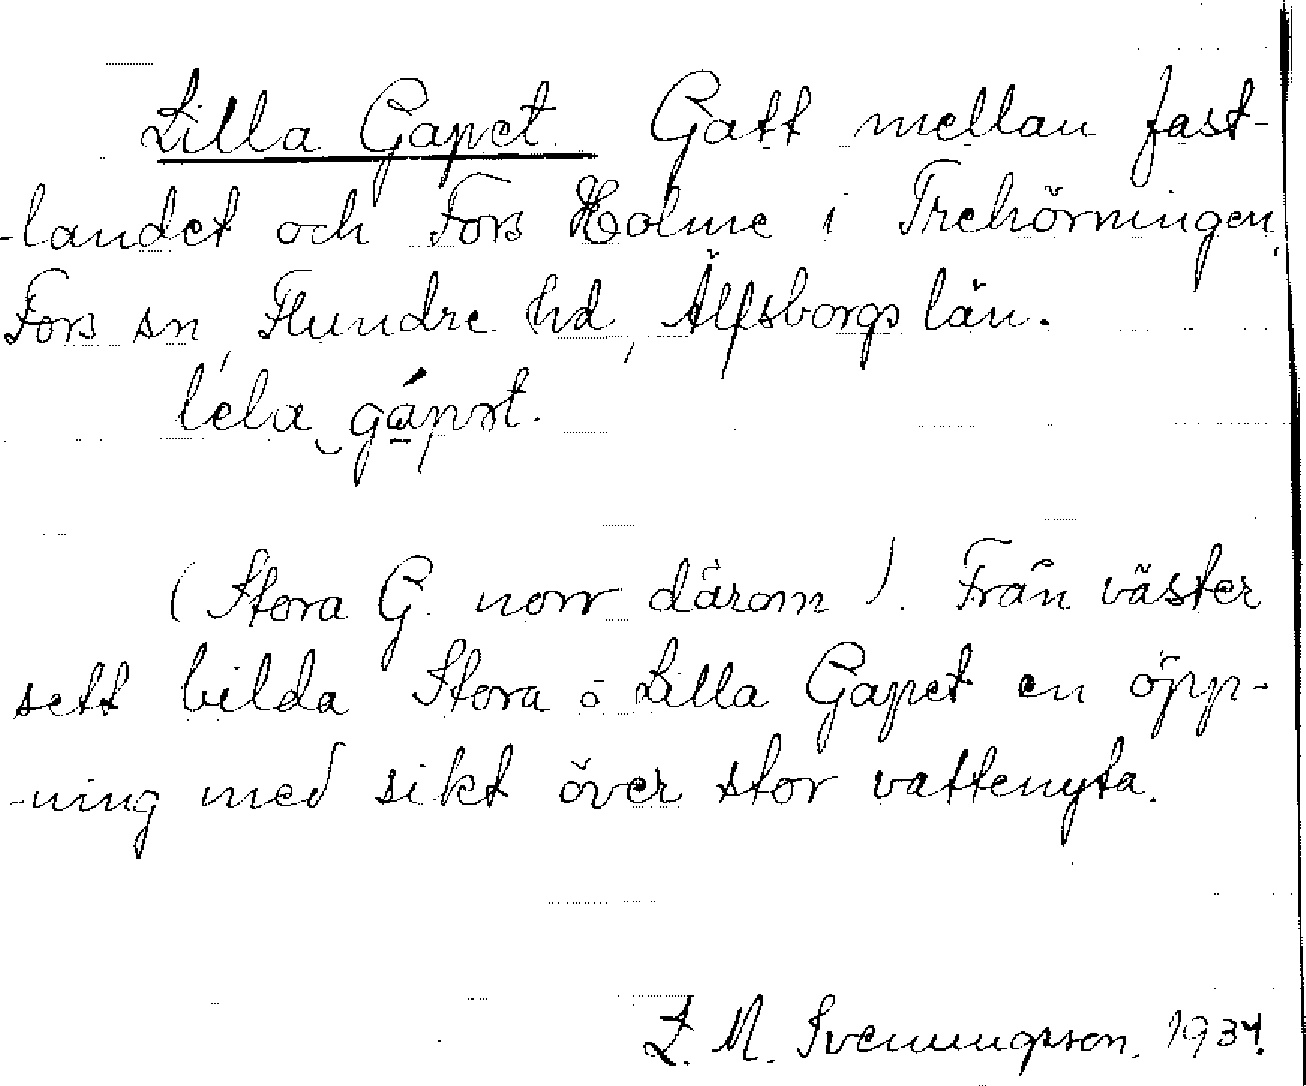 Lilla Gapet. Gatt mellan fast-
-landet och Fors Holme i Trehörningen,
Fors sn, Flundre hd, Älfsborgs län.
(Stora G. norr därom). Från väster
sett bilda Stora o Lilla Gapet en öpp-
-ning med sikt över stor vattenyta.
L. M. Svenungsson. 1934.